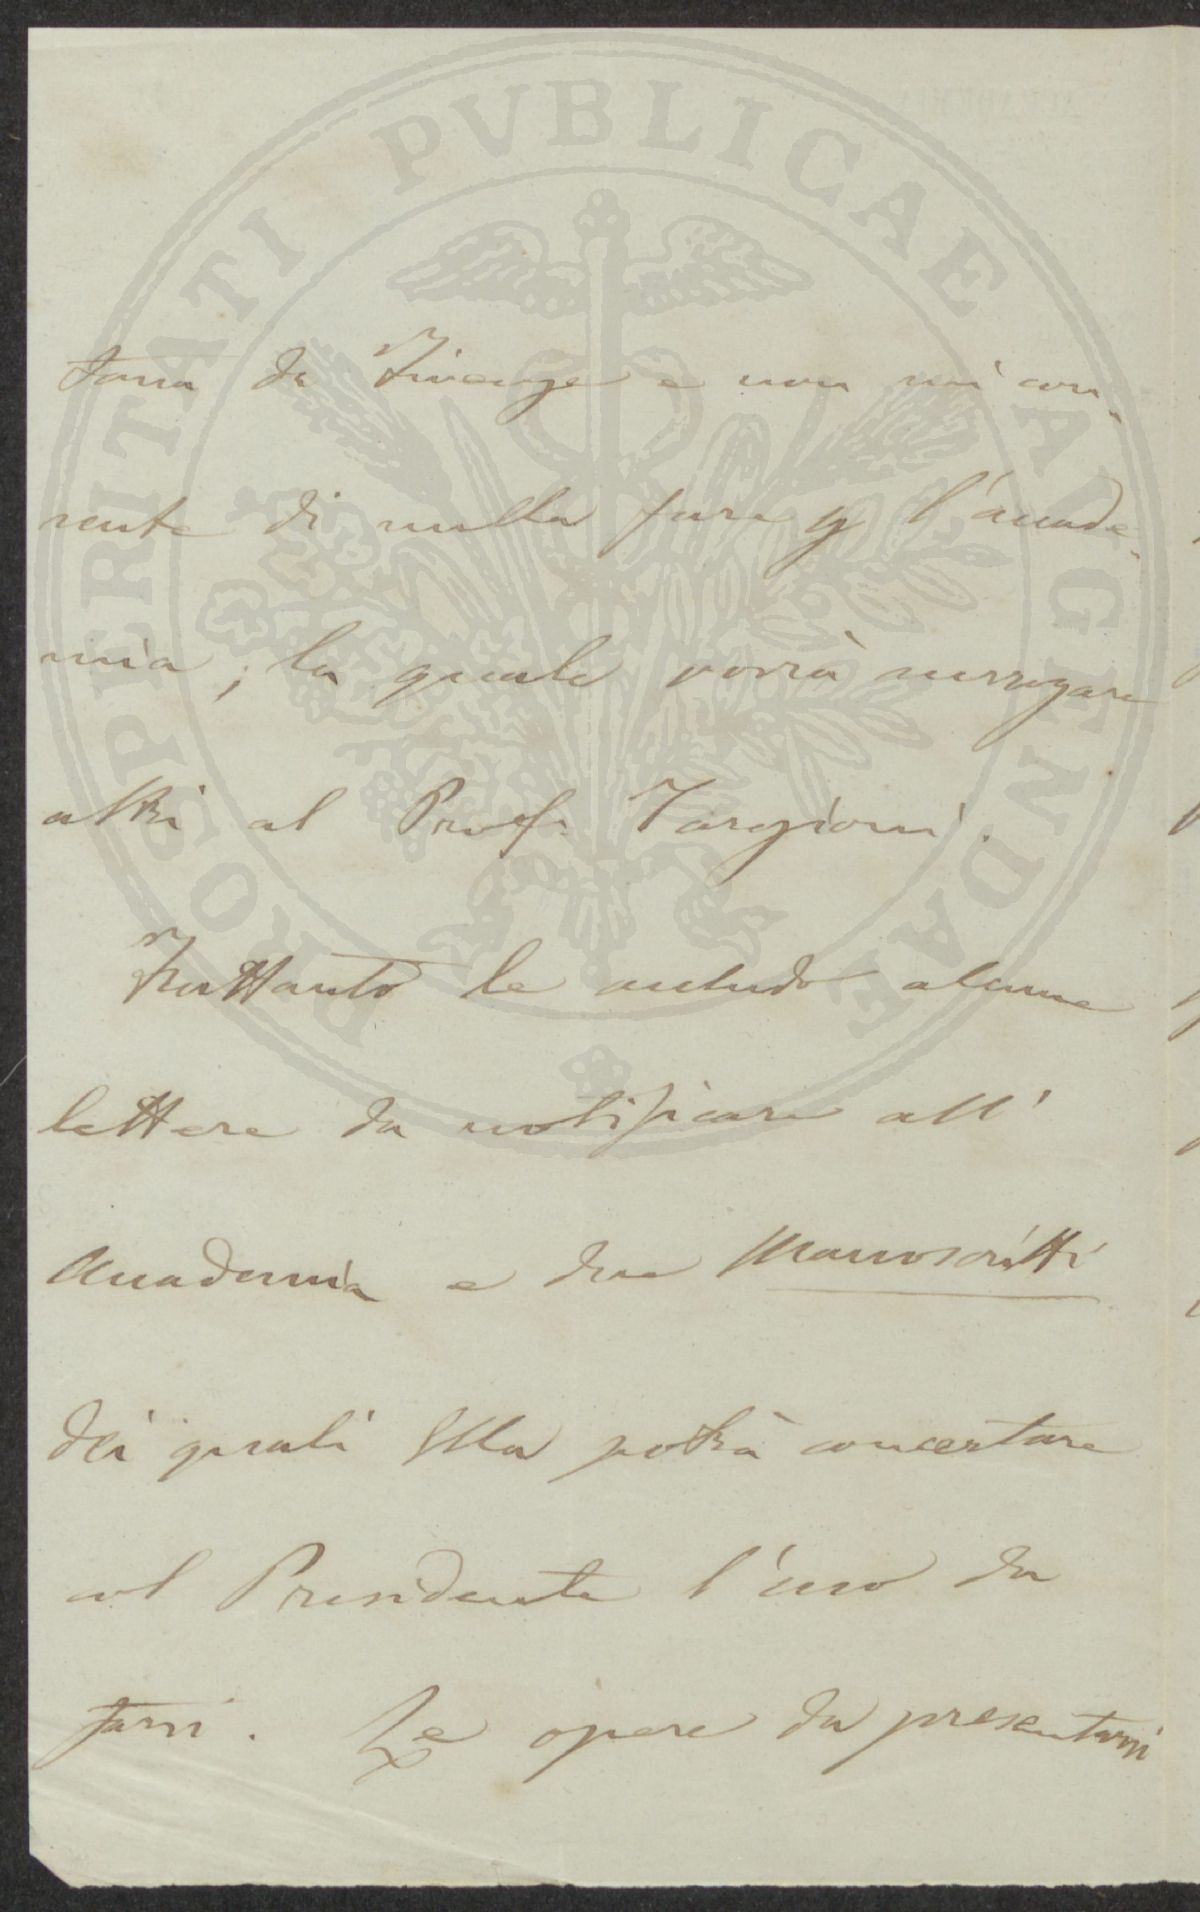 PROSPERITATI PUBLICAE AUGENDAE
tana da Firenze e non mi con-
sente di nulla fare p l'accade-
mia, la quale vorrà surrogare
altri al Prof. Targioni.
Frattanto le accludo alcune
lettere da notificare all'
Accademia e due Manoscritti
dei quali Ella potrà concertare
col Presidente l'uso da
farsi. Le opere da presentarsi